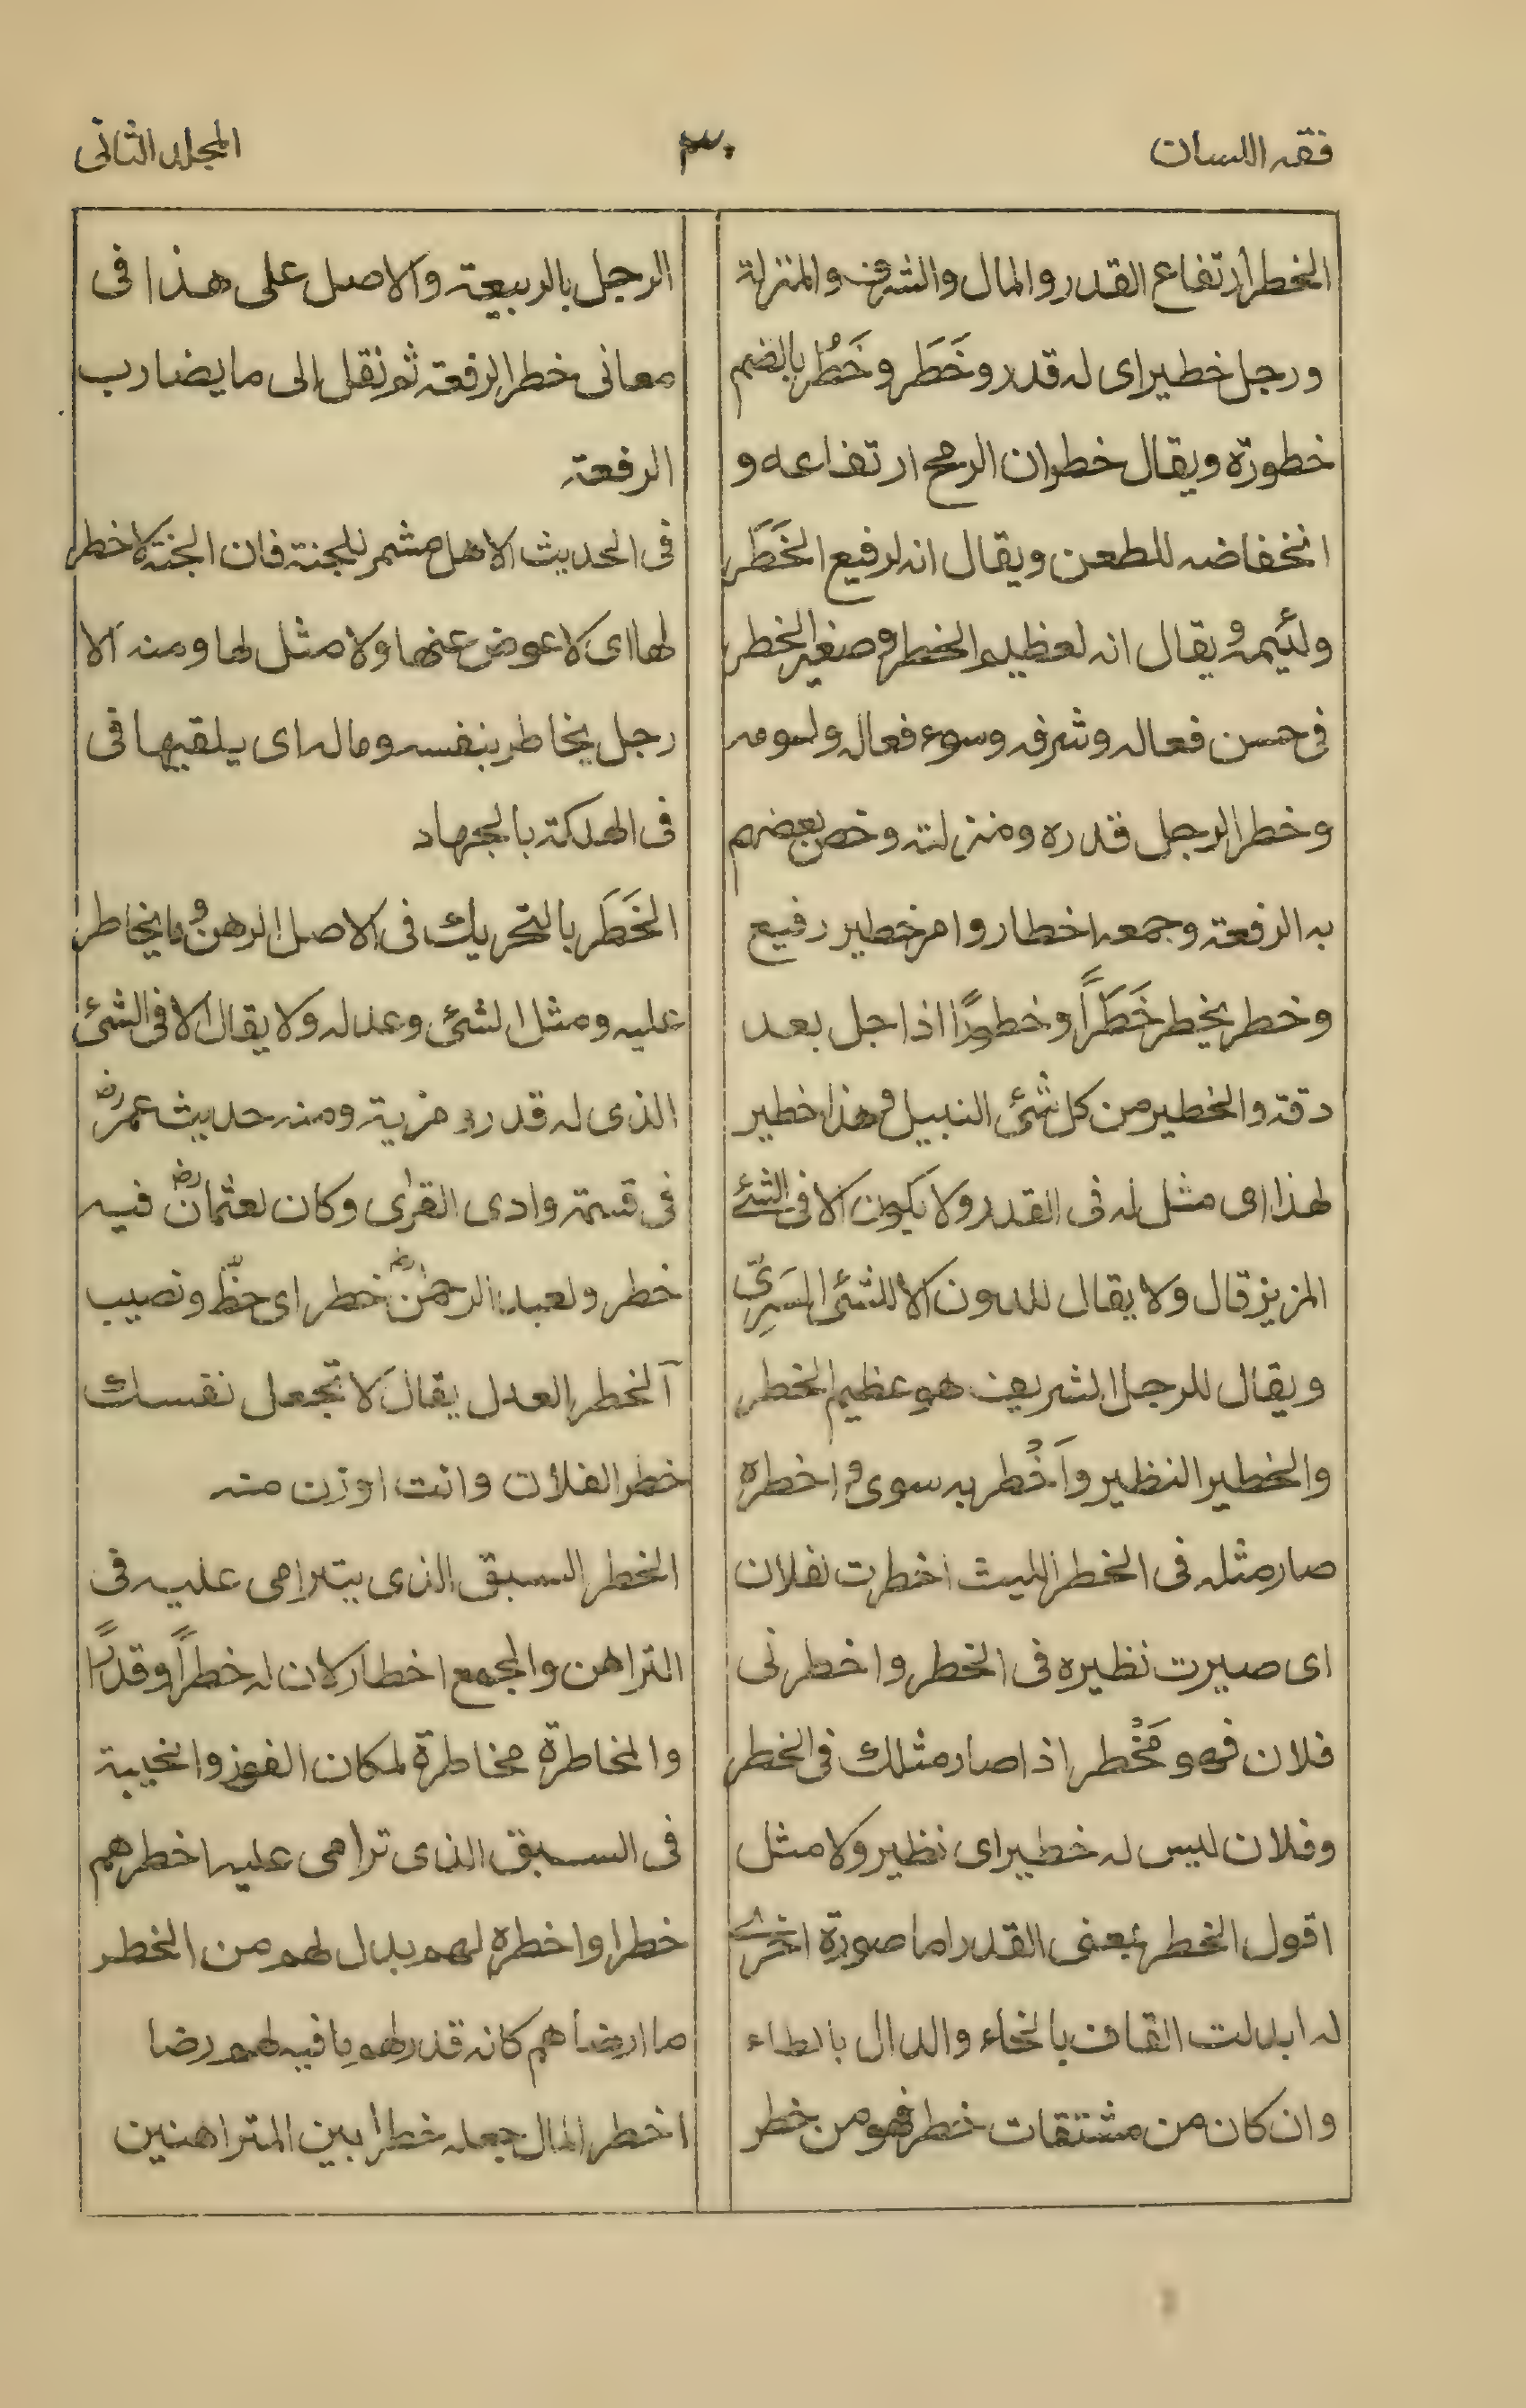 فقه اللسان
٣٠
المجلد الثانی
الخطر ارتفاع القدر والمال والشرف والمنزلة
ورجل خطیر ای له قدر وخَطَر وخَطُر بالضم
خطورة ویقال خطران الرمح ارتفاعه و
انخفاضه للطعن ویقال انه لرفیع الخَطَر
ولئیمه ویقال انه لعظیم الخطر وصغیر الخطر
فی حسن فعاله وشرفه وسوء فعاله ولومه
وخطر الرجل قدره ومنزلته وخص بعضهم
به الرفعة وجمعه اخطار وامر خطیر رفیع
وخطر یخطر خَطَراً وخطورًا اذا جل بعد
دقة والخطیر من کل شئ النبیل وهذا خطیر
لهذا ای مثل له فی القدر ولا یکون الا فی الشئے
المزیز قال ولا یقال للدون الا للشئ السَرِیّ
ویقال للرجل الشریف هو عظیم الخطر
والخطیر النظیر واَخْطر به سوی واخطره
صار مثله فی الخطر اللیث اخطرت لفلان
ای صیرت نظیره فی الخطر واخطرنی
فلان فهو مَخْطر اذا صار مثلك فی الخطر
وفلان لیس له خطیر ای نظیر ولا مثل
اقول الخطر بمعنی القدر اما صورة اخرے
له ابدلت القاف بالخاء والدال بالطاء
وان کان من مشتقات خطر فهو من خطر
الرجل بالربیعة والاصل علی هذا فی
معانی خطر الرفعة ثم نقل الی ما یضارب
الرفعة
فی الحدیث الا هل مشمر للجنة فان الجنة لا خطر
لها ای لا عوض عنها ولا مثل لها ومنه الا
رجل یخاطر بنفسه وماله ای یلقیها فی
فی الهلکة بالجهاد
الخَطَر بالتحریك فی الاصل الرهن وما یخاطر
علیه ومثل الشئ وعدله ولا یقال الا فی الشئ
الذی له قدر ومزیة ومنه حدیث عمر رض
فی قسمة وادی القری وکان لعثمان رض فیه
خطر ولعبد الرحمن رض خطر ای حظّ ونصیب
آلخطر العدل یقال لا تجعل نفسك
خطر الفلان وانت اوزن منه
الخطر السبق الذی یترامی علیه فی
التراهن والجمع اخطار کان له خطراً وقدراً
والمخاطرة مخاطرة لمکان الفوز والخیبة
فی السبق الذی ترامی علیه اخطرهم
خطرا واخطره لهم بدل لهم من الخطر
ما ارضاهم کانه قدر لهم ما فیه لهم رضا
اخطر المال جعله خطراً بین المتراهنین